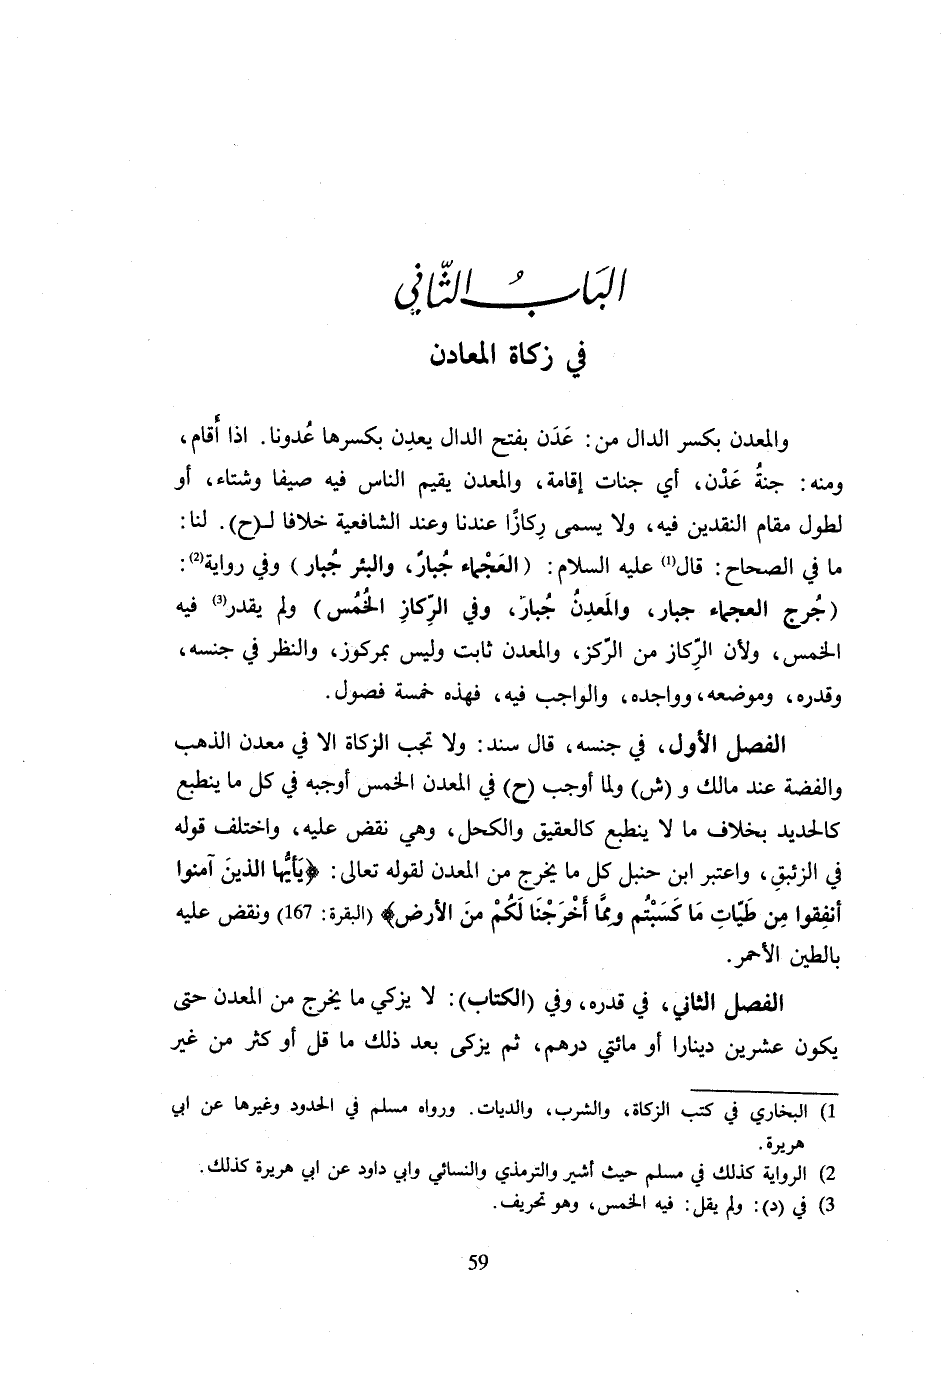 البَابُ الثَّاني
في زكاة المعادن
والمعدن بكسر الدال من: عَدَن بفتح الدال يعدِن بكسرها عُدونا. اذا أَقام،
ومنه: جنةُ عَدْن، أي جنات إقامة، والمعدن يقيم الناس فيه صيفا وشتاء، أو
لطول مقام النقدين فيه، ولا يسمى رِكازًا عندنا وعند الشافعية خلافا لـ(ح). لنا:
ما في الصحاح: قال(1) عليه السلام: (العَجْماء جُبارٌ، والبئر جُبار) وفي رواية(2):
(جُرح العجماء جبار، والمَعدِنُ جُبارٌ، وفي الرِّكازِ الخُمُس) ولم يقدر(3) فيه
الخمس، ولأن الرِّكاز من الرّكز، والمعدن ثابت وليس بمركوز، والنظر في جنسه،
وقدره، وموضعه، وواجده، والواجب فيه، فهذه خمسة فصول.
الفصل الأول، في جنسه، قال سند: ولا تجب الزكاة الا في معدن الذهب
والفضة عند مالك و (ش) ولما أوجب (ح) في المعدن الخمس أوجبه في كل ما ينطبع
كالحديد بخلاف ما لا ينطبع كالعقيق والكحل، وهي نقض عليه، واختلف قوله
في الزئبق، واعتبر ابن حنبل كل ما يخرج من المعدن لقوله تعالى: ﴿يَأيُّها الذينَ آمنوا
أنفِقوا مِن طَيِّبَاتِ مَا كَسَبْتُم ومِمَّا أَخْرَجْنَا لَكُمْ منَ الأرض﴾ (البقرة: 167) ونقض عليه
بالطين الأحمر.
الفصل الثاني، في قدره، وفي (الكتاب): لا يزكي ما يخرج من المعدن حتى
يكون عشرين دينارا أو مائتي درهم، ثم يزكى بعد ذلك ما قل أو كثر من غير
1) البخاري في كتب الزكاة، والشرب، والديات. ورواه مسلم في الحدود وغيرها عن ابي
هريرة.
2) الرواية كذلك في مسلم حيث أشير والترمذي والنسائي وابي داود عن ابي هريرة كذلك.
3) في (د): ولم يقل: فيه الخمس، وهو تحريف.
59